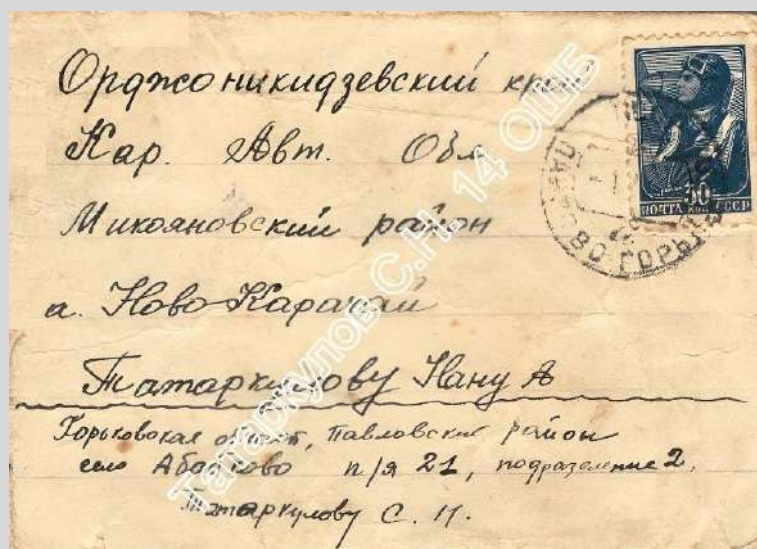 Орджоникидзевский край
Кар. Авт. Обл
Микояновский район
а. Ново-Карачай
Татаркулову Нану А
Горьковская область, Павловский район
село Абабково п/я 21, подразделение 2,
Татаркулову С. Н.
30
ПОЧТА КОП СССР
ГОРЬК
Татаркулов С.Н. 14 ОШБ